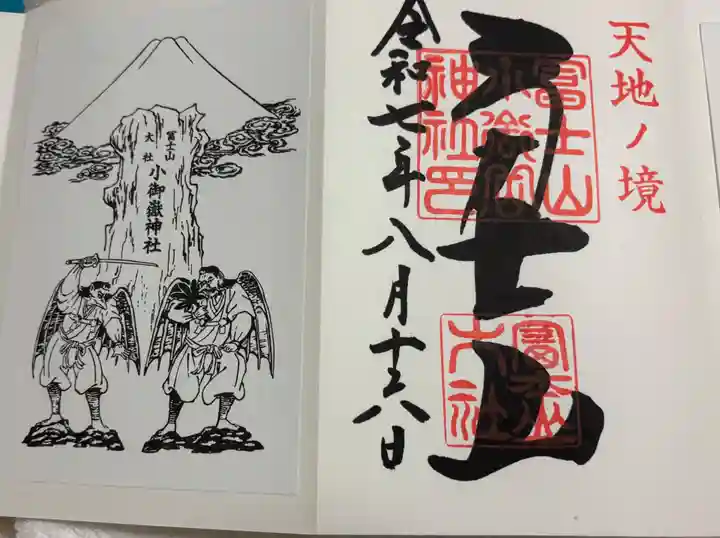 天地ノ境
冨士山
令和七年八月十六日
冨士山
小御嶽
神社印
大社
冨士山
大社
小御嶽神社